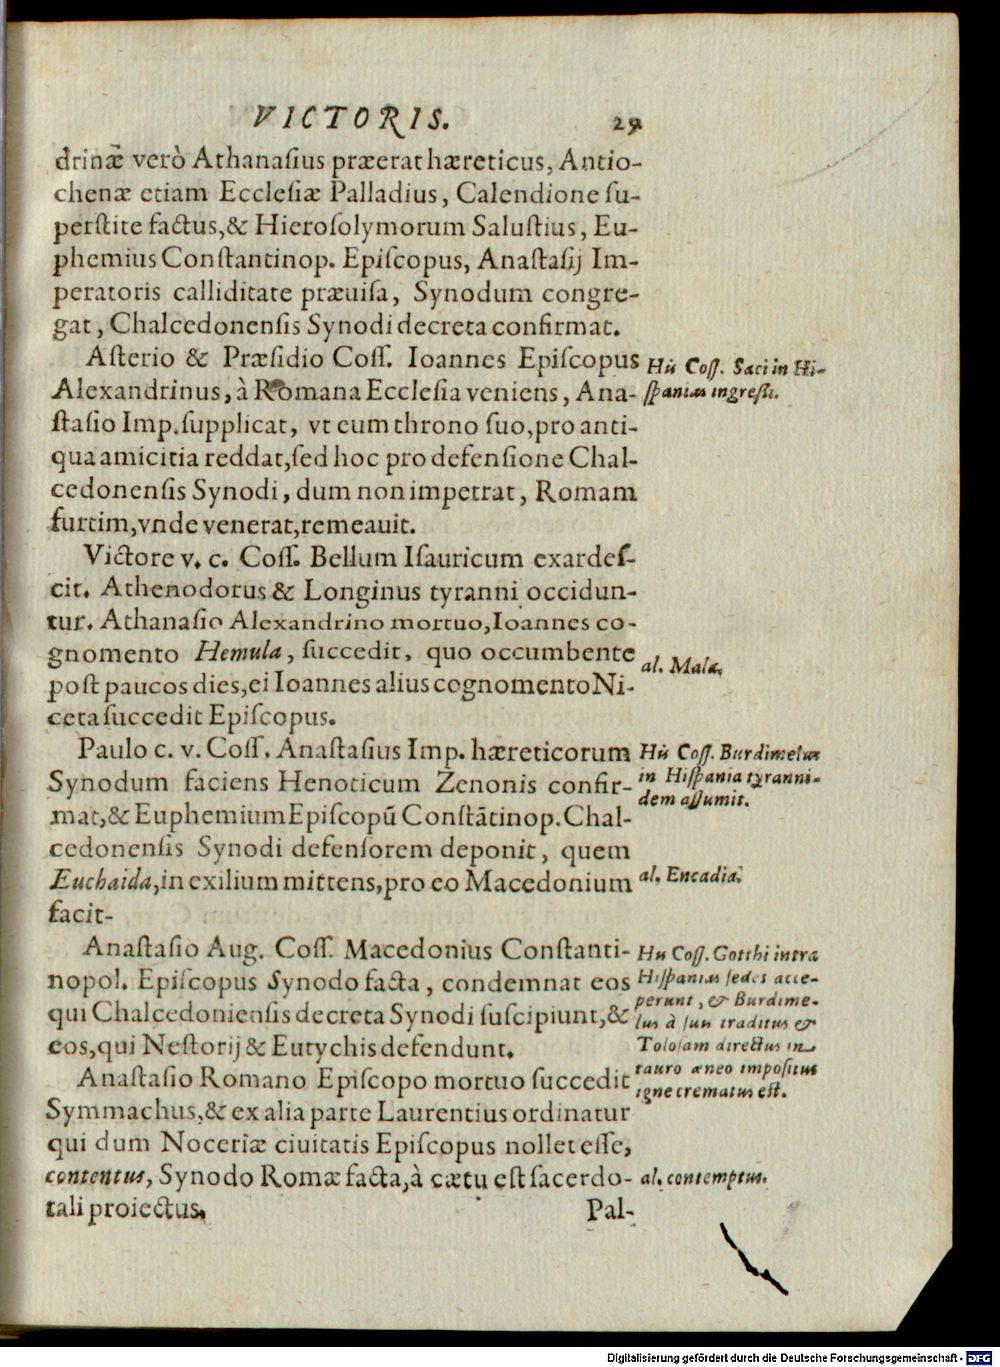 VICTORIS. 29
drinæ verò Athanaſius præerat hæreticus, Antio-
chenæ etiam Eccleſiæ Palladius, Calendione ſu-
perſtite factus,& Hieroſolymorum Saluſtius, Eu-
phemius Conſtantinop. Epiſcopus, Anaſtaſij Im-
peratoris calliditate præuiſa, Synodum congre-
gat, Chalcedonenſis Synodi decreta confirmat.
Aſterio & Præſidio Coſſ. Ioannes Epiſcopus
Alexandrinus, à Romana Eccleſia veniens, Ana-
ſtaſio Imp. ſupplicat, vt eum throno ſuo, pro anti-
qua amicitia reddat, ſed hoc pro defenſione Chal-
cedonenſis Synodi, dum non impetrat, Romam
furtim, vnde venerat, remeauit.
Hu Coſſ. Saci in Hi-
ſpanias ingreſſi.
Victore v. c. Coſſ. Bellum Iſauricum exardeſ-
cit. Athenodorus & Longinus tyranni occidun-
tur. Athanaſio Alexandrino mortuo, Ioannes co-
gnomento Hemula, ſuccedit, quo occumbente
poſt paucos dies, ei Ioannes alius cognomento Ni-
ceta ſuccedit Epiſcopus.
al. Mala.
Paulo c. v. Coſſ. Anaſtaſius Imp. hæreticorum
Synodum faciens Henoticum Zenonis confir-
mat,& Euphemium Epiſcopũ Conſtãtinop. Chal-
cedonenſis Synodi defenſorem deponit, quem
Euchaida, in exilium mittens, pro eo Macedonium
facit-
Hu Coſſ. Burdimelus
in Hiſpania tyranni-
dem aſſumit.
al. Encadia.
Anaſtaſio Aug. Coſſ. Macedonius Conſtanti-
nopol. Epiſcopus Synodo facta, condemnat eos
qui Chalcedonienſis decreta Synodi ſuſcipiunt,&
eos, qui Neſtorij & Eutychis defendunt.
Hu Coſſ. Gotthi intra
Hiſpanias ſedes acce-
perunt, & Burdime-
lus à ſuis traditus &
Toloſam directus in
tauro æneo impoſitus
igne crematus eſt.
Anaſtaſio Romano Epiſcopo mortuo ſuccedit
Symmachus,& ex alia parte Laurentius ordinatur
qui dum Noceriæ ciuitatis Epiſcopus nollet eſſe,
contentus, Synodo Romæ facta, à cætu eſt ſacerdo-
tali proiectus.
al. contemptus.
Pal-
Digitalisierung gefördert durch die Deutsche Forschungsgemeinschaft - DFG